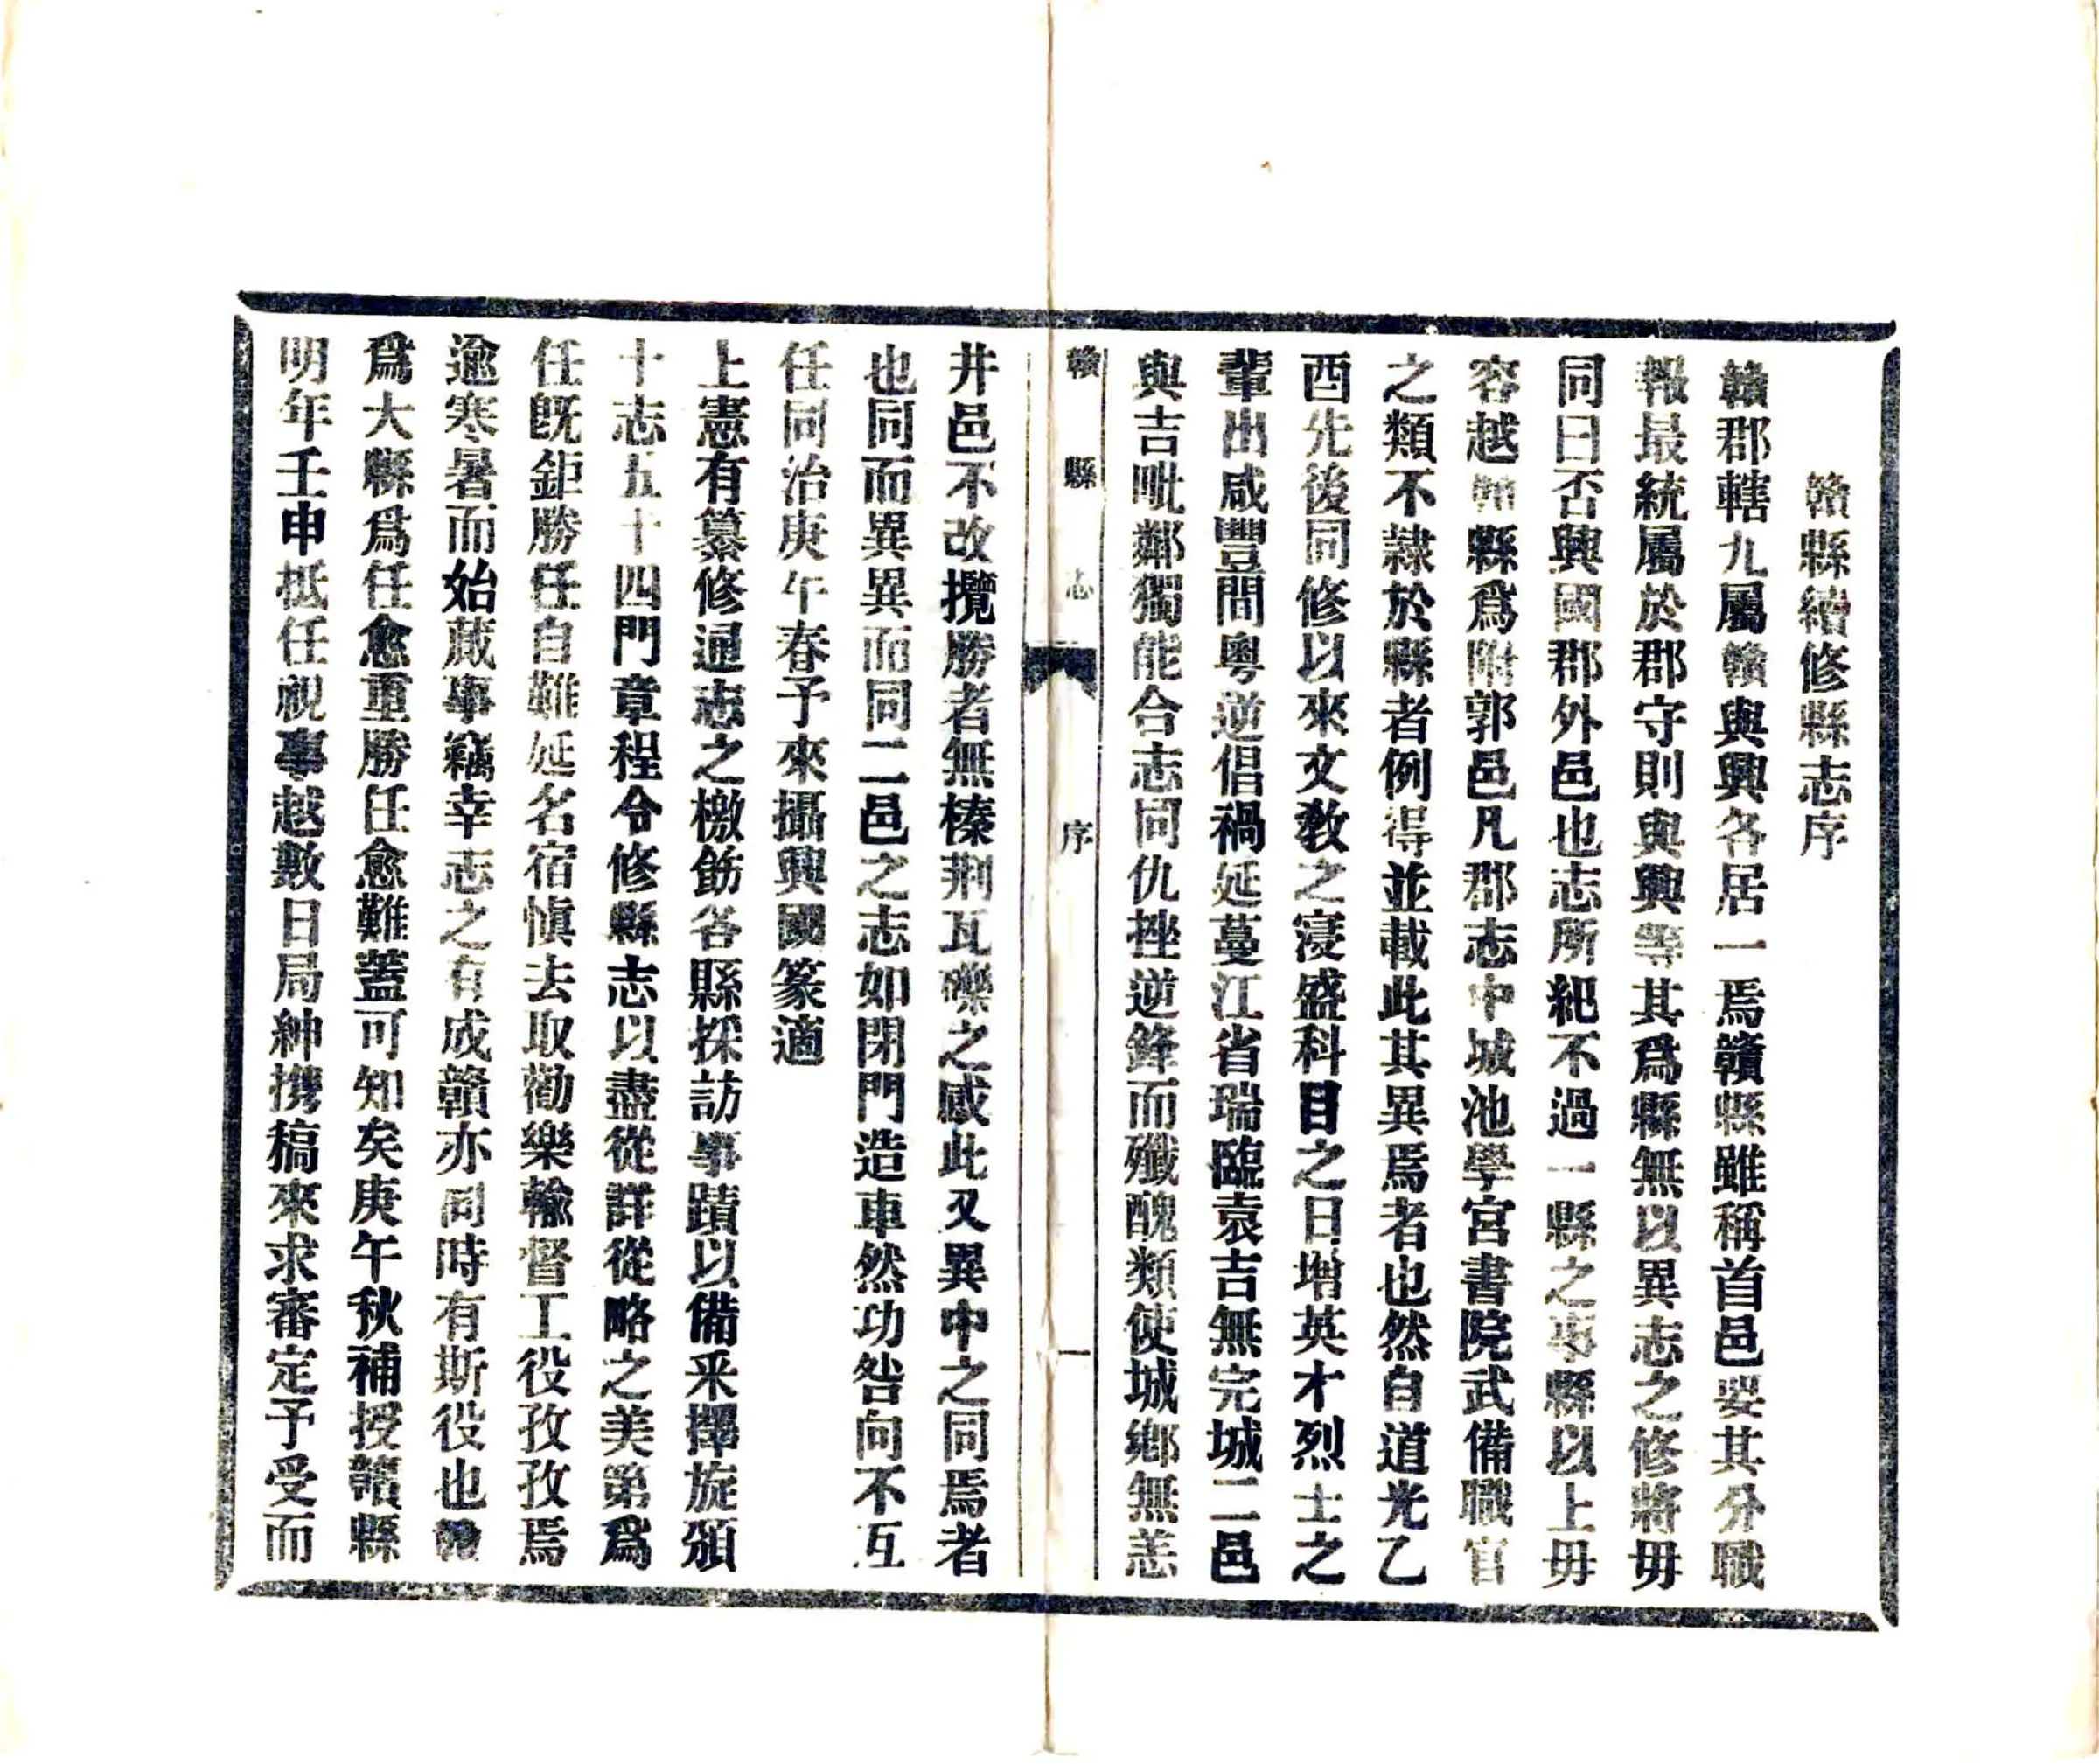 贛縣續修縣志序
贛郡轄九屬贛與興各居一焉贛縣雖稱首邑要其分職
報最統屬於郡守則與興等其爲縣無以異志之修將毋
同曰否興國郡外邑也志所紀不過一縣之事縣以上毋
容越贛縣爲附郭邑凡郡志中城池學宮書院武備職官
之類不隷於縣者例得並載此其異焉者也然自道光乙
酉先後同修以來文教之寖盛科目之日增英才烈士之
輩出咸豐間粤逆倡禍延蔓江省瑞臨袁吉無完城二邑
與吉毗鄰獨能合志同仇挫逆鋒而殲醜類使城鄉無恙
贛縣志 序 一
井邑不改攬勝者無榛荆瓦礫之感此又異中之同焉者
也同而異異而同二邑之志如閉門造車然功咎向不互
任同治庚午春予來攝興國篆適
上憲有纂修通志之檄飭各縣採訪事蹟以備采擇旋頒
十志五十四門章程令修縣志以盡從詳從略之美第爲
任旣鉅勝任自難延名宿愼去取勸樂輸督工役孜孜焉
逾寒暑而始蕆事竊幸志之有成贛亦同時有斯役也贛
爲大縣爲任愈重勝任愈難蓋可知矣庚午秋補授贛縣
明年壬申抵任視事越數日局紳携稿來求審定予受而